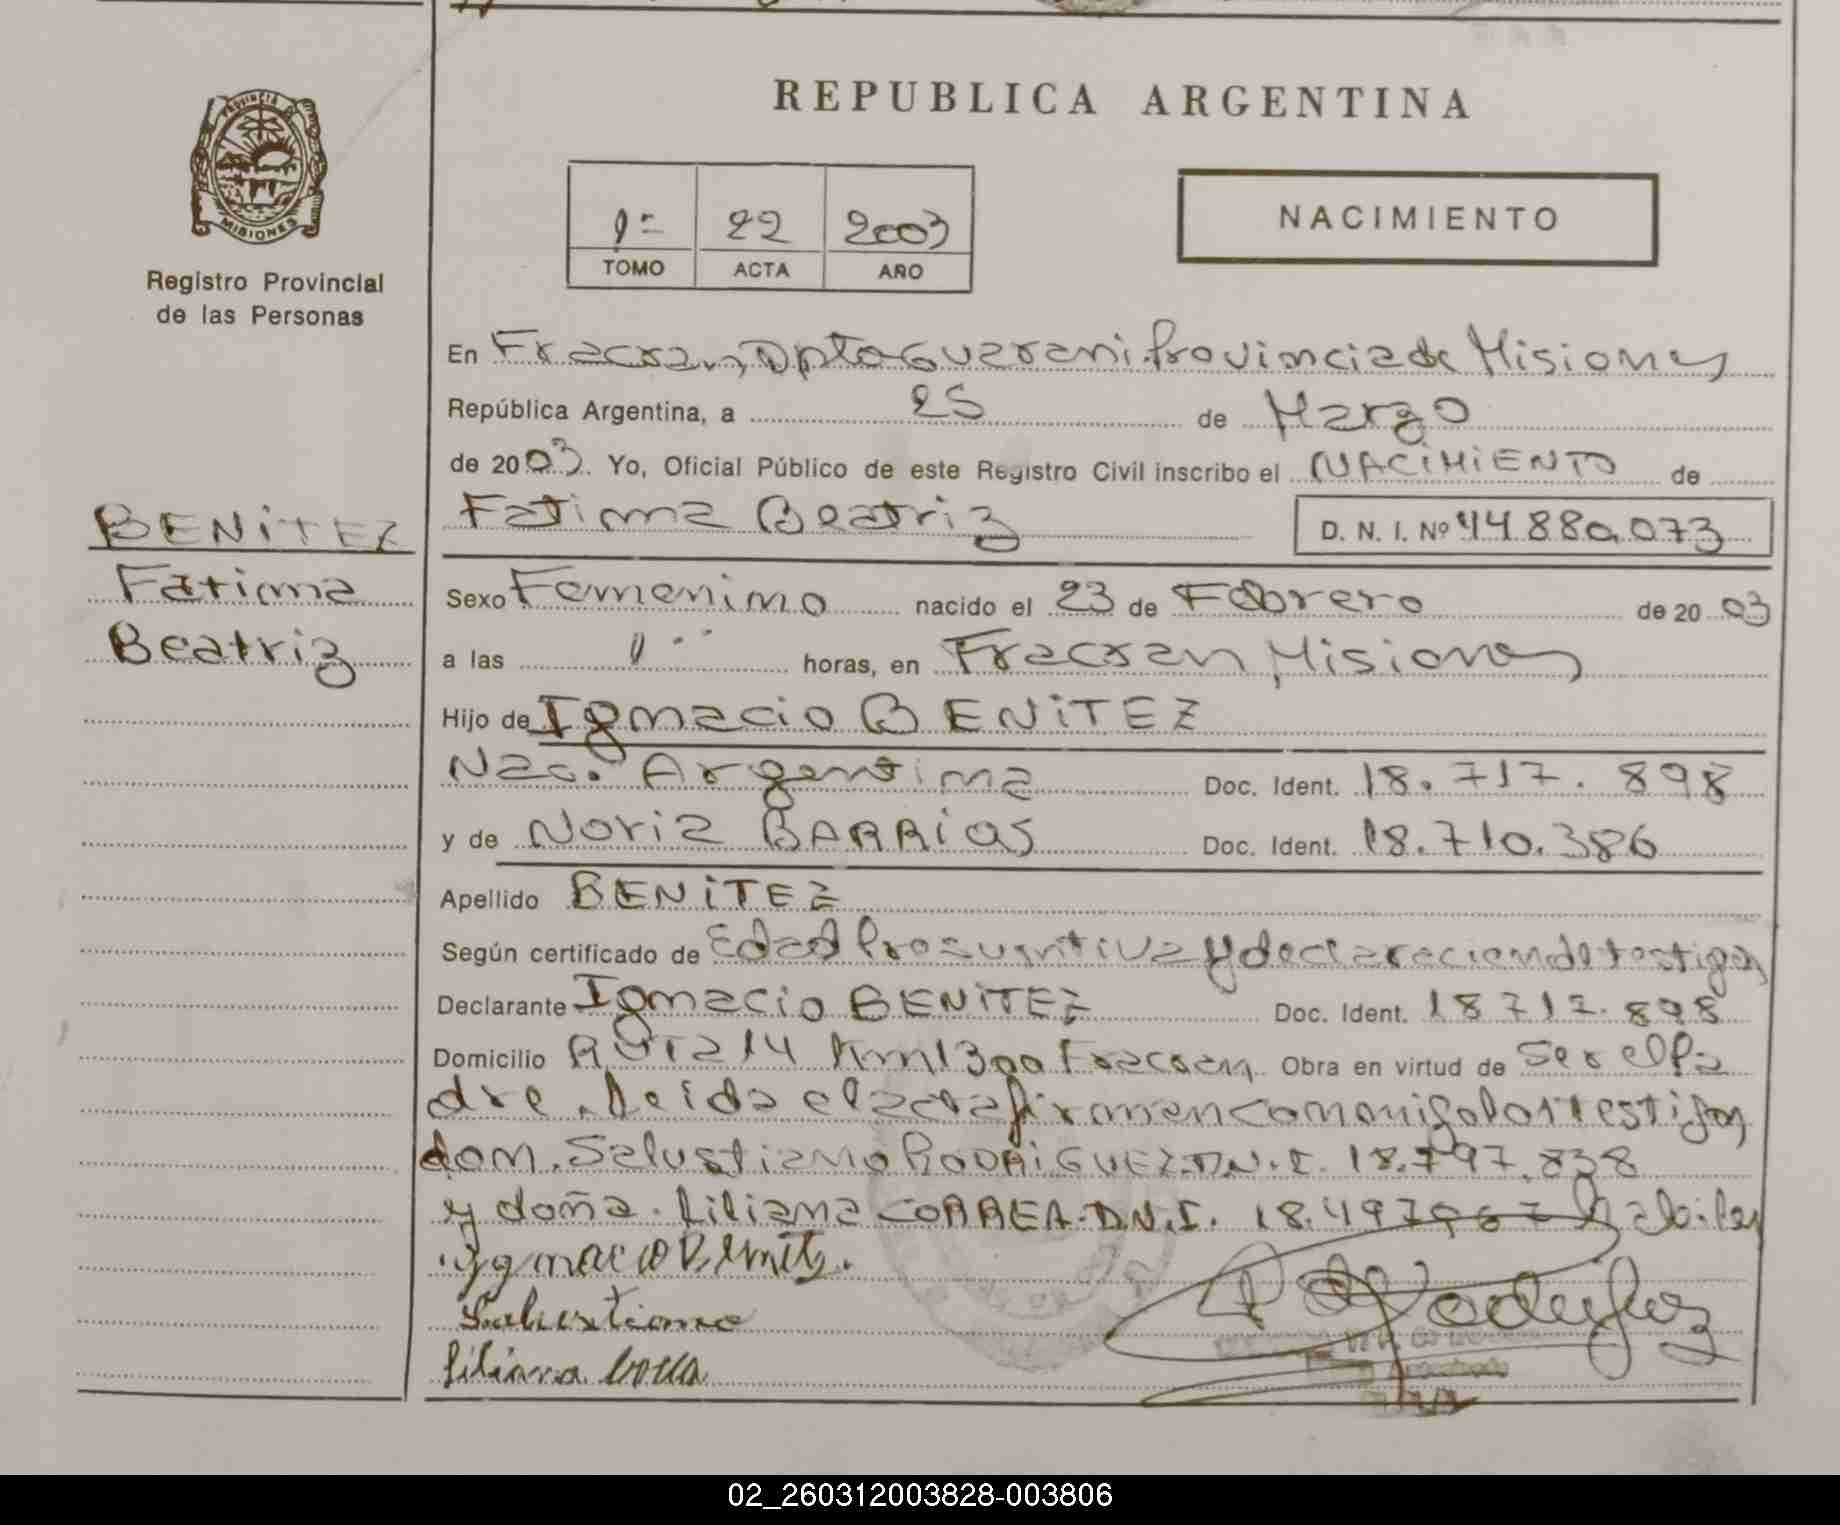 REPUBLICA ARGENTINA
PROVINCIA DE
MISIONES
Registro Provincial
de las Personas
1º 22 2003
TOMO ACTA AÑO
NACIMIENTO
En Fracran, Dpto Guarani. Provincia de Misiones
República Argentina, a 25 de Marzo
de 2003. Yo, Oficial Público de este Registro Civil inscribo el NACIMIENTO de
Fatima Beatriz D. N. I. Nº 44.880.073
BENITEZ
Fatima
Beatriz
Sexo Femenino nacido el 23 de Febrero de 2003
a las 1 horas, en Fracran, Misiones
Hijo de Ignacio BENITEZ
Nac. Argentina Doc. Ident. 18.717.898
y de Noria BARRIOS Doc. Ident. 18.710.386
Apellido BENITEZ
Según certificado de Edad Presuntiva y declaracion de testigos
Declarante Ignacio BENITEZ Doc. Ident. 18717.898
Domicilio Ruta 14 Km 1300 Fracran Obra en virtud de Ser el Pa
dre. Leida el acta firman con migo los testigos
don. Salustiano RODRIGUEZ. D.N.I. 18.797.838
y doña. Liliana CORREA. D.N.I. 18.497967 habiles
ygnacio Benitez.
Salustiano
Liliana
02_260312003828-003806